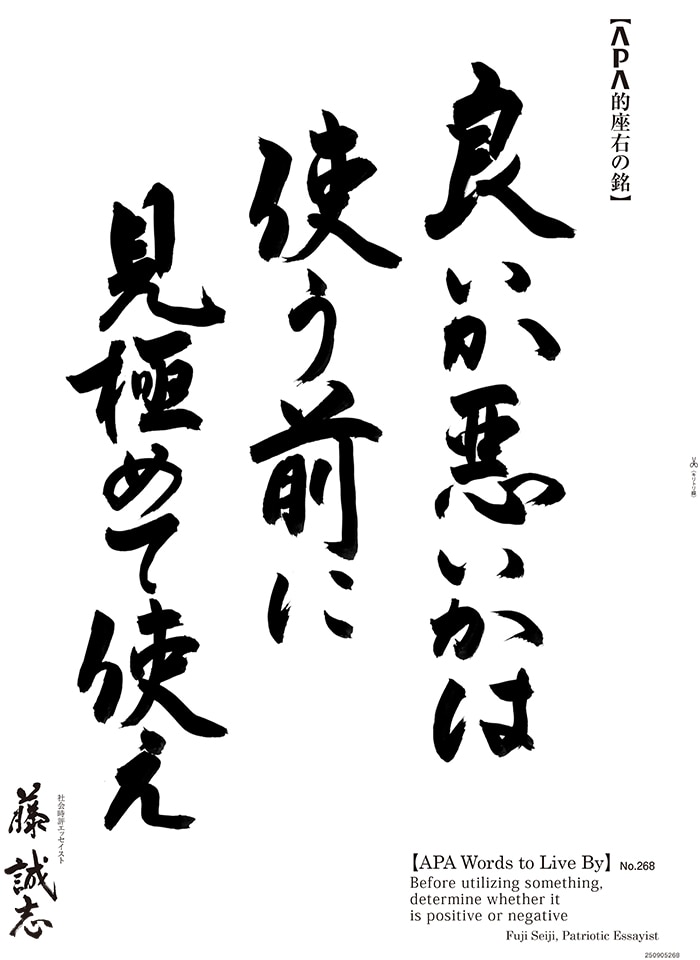 【APA的座右の銘】
良いか悪いかは
使う前に
見極めて使え
社会時評エッセイスト
藤 誠志
(キリトリ線)
【APA Words to Live By】 No.268
Before utilizing something,
determine whether it
is positive or negative
Fuji Seiji, Patriotic Essayist
250905268